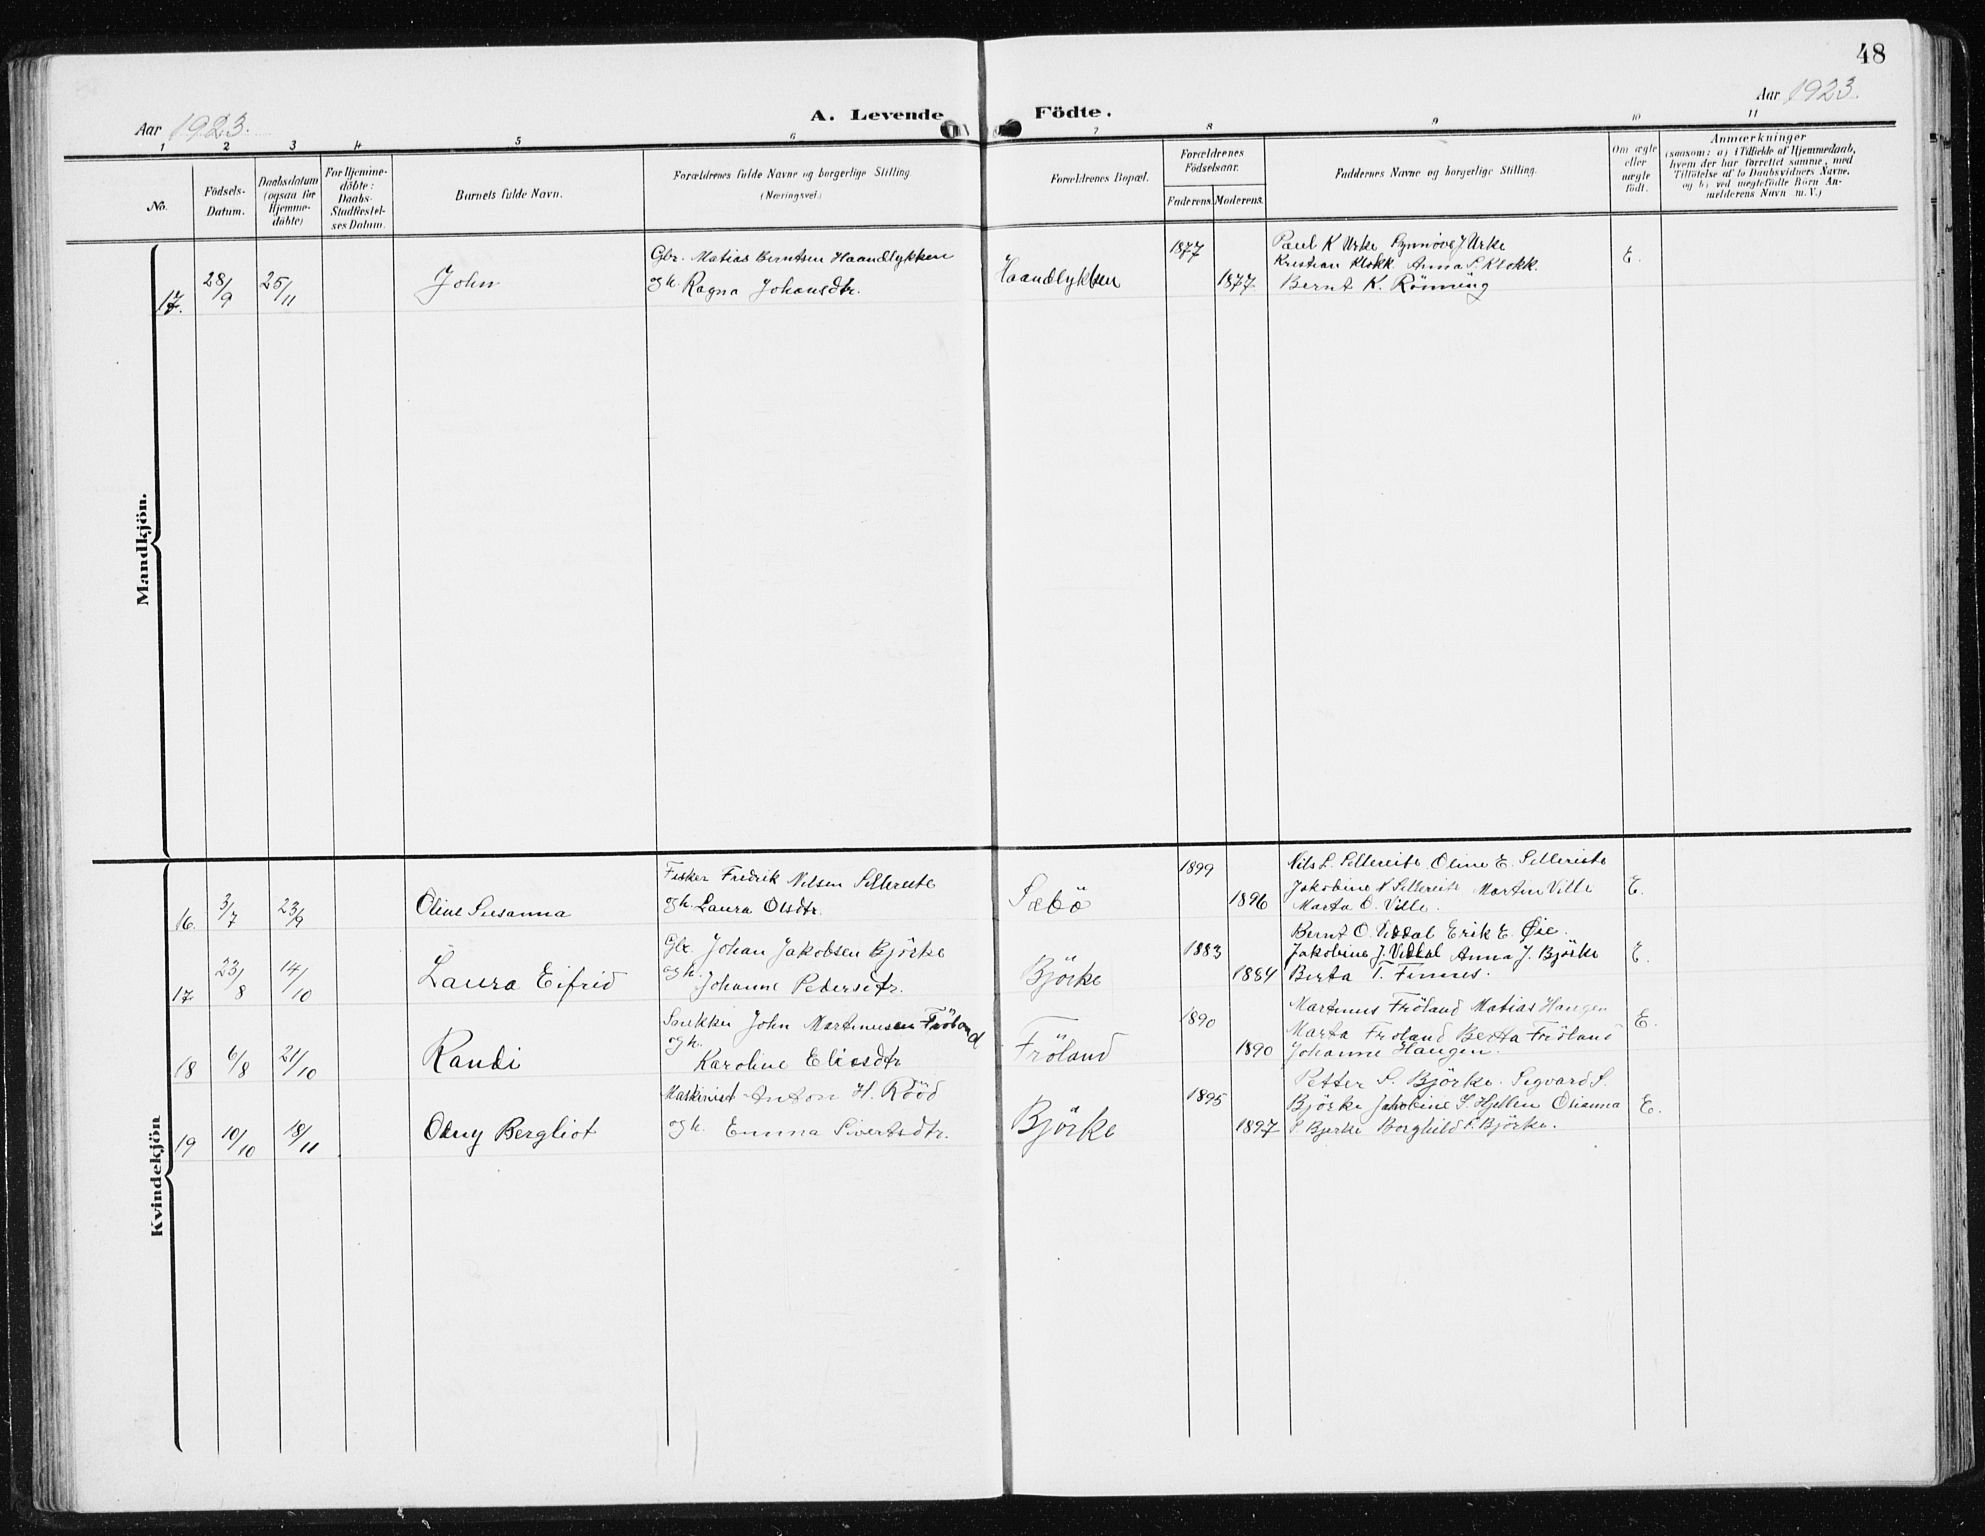 48
Aar 1923.
A. Levende Födte.
Aar 1923.
1 2 3 4 5 6 7 8 9 10 11
No.
Födsels-
Datum.
Daabsdatum
(ogsaa for
Hjemme-
döbte)
For Hjemme-
döbte:
Daabs-
Stadfæstel-
ses Datum.
Barnets fulde Navn.
Forældrenes fulde Navne og borgerlige Stilling
(Næringsvei.)
Forældrenes Bopæl.
Forældrenes
Födselsaar.
Faderens. Moderens.
Faddernes Navne og borgerlige Stilling.
Om ægte
eller
uægte
födt.
Anmærkninger
(saasom: a) i Tilfælde af Hjemmedaab,
hvem der har forrettet samme, med
Tilföielse af to Daabsvidners Navne,
og b) ved uægtefödte Börn An-
melderens Navn m. V.)
Mandkjön.
17. 28/9 25/11 John
Gbr. Matias Berntsen Haandlykken
og h. Ragna Johansdtr.
Haandlykken
1877
1877.
Paul K Urke Synnøve J Urke
Kristian Klokk. Anna S. Klokk.
Bernt K. Rönning
E.
Kvindekjön
16. 3/7 23/9 Oline Susanna
Fisker Fredrik Nilsen Sellereite
og h. Laura Olsdtr.
Sæbö
1899
1896
Nils L. Sellereite Oline E. Sellereite
Jakobine N Sellereite Martin Ville
Marta O. Ville.
E.
17. 23/8 14/10 Laura Eifrid
Gbr. Johan Jakobsen Björke
og h. Johanne Pedersdtr.
Björke
1883
1884
Bernt O. Viddal Erik E. Øie.
Jakobine J. Viddal Anna J. Björke
Berta T. Finnes.
E.
18 6/8 21/10 Randi
John Martinussen Fröland
og h. Karoline Eliasdtr
Fröland
1890
1890
Martinus Fröland Matias Haugen
Marta Fröland Berta Fröland
Johanne Haugen.
E.
19 10/10 18/11 Odny Bergliot
Maskinist Anton H. Rööd
og h. Emma Sivertsdtr.
Björke
1895
1897
Petter S. Björke. Sigvard S.
Björke Jakobine S. Hjellen Osianna
S Bjerke Borghild P. Björke.
E.